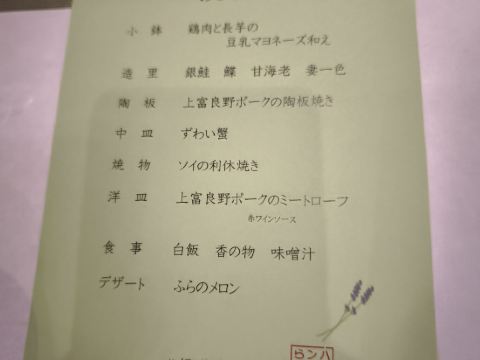 小鉢 鶏肉と長芋の
豆乳マヨネーズ和え
造里 銀鮭 鰈 甘海老 妻一色
陶板 上富良野ポークの陶板焼き
中皿 ずわい蟹
焼物 ソイの利休焼き
洋皿 上富良野ポークのミートローフ
赤ワインソース
食事 白飯 香の物 味噌汁
デザート ふらのメロン